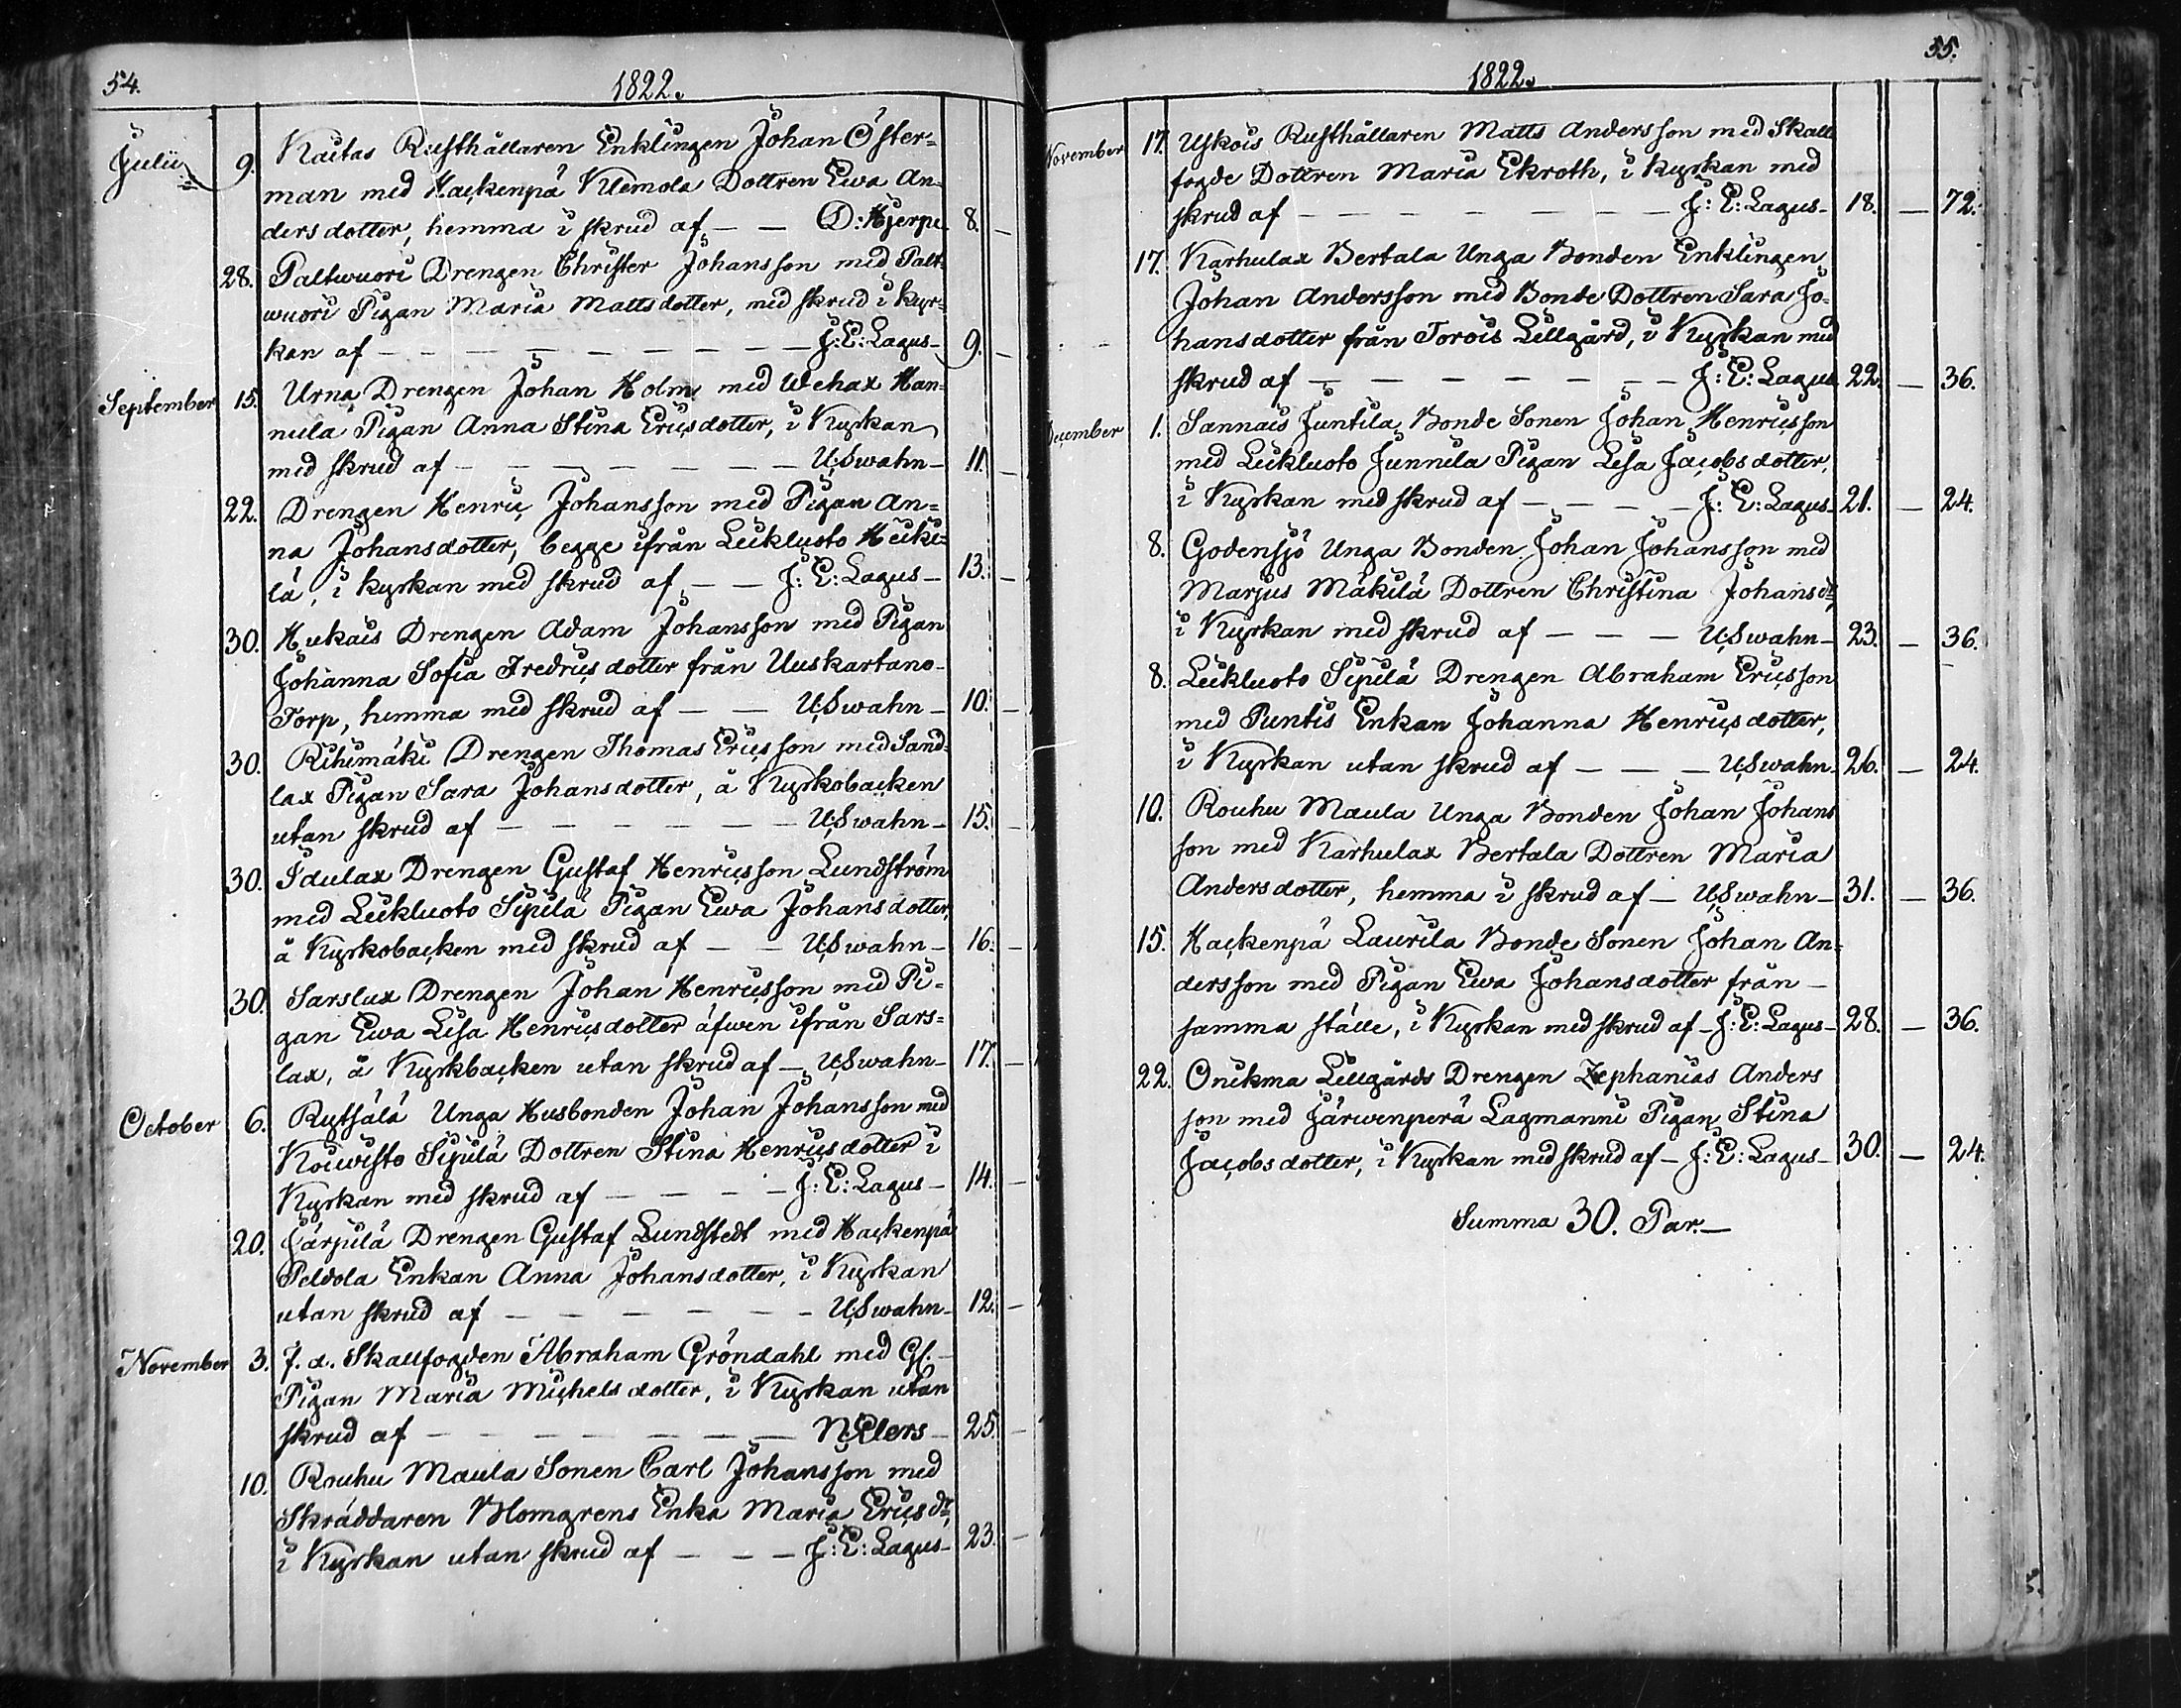 54.
1822.
Julii 9. Kaitas Rusthållaren Enklingen Johan Öster=
man med Hackenpä Klemola Dottren Ewa An=
dersdotter, hemma i skrud af — — D: Hjerpe 8. —
28. Paltwuori Drengen Christer Johansson med Palt=
wuori Pigan Maria Mattsdotter, med skrud i kyr=
kan af — — — — — — — — J: E: Lagus — 9. —
September 15. Urna Drengen Johan Holm med Wehax Han=
nula Pigan Anna Stina Ericsdotter, i Kyrkan
med skrud af — — — — — — U: Swahn — 11. —
22. Drengen Henric Johansson med Pigan An=
na Johansdotter, begge ifrån Leikluoto Heiki=
lä, i kyrkan med skrud af — — J: E: Lagus — 13. —
30. Hukais Drengen Adam Johansson med Pigan
Johanna Sofia Fredricsdotter från Uuskartano
Torp, hemma med skrud af — — U: Swahn — 10. —
30. Rihimäki Drengen Thomas Ericsson med Sand=
lax Pigan Sara Johansdotter, å Kyrkobacken
utan skrud af — — — — — — U: Swahn — 15. —
30. Idulax Drengen Gustaf Henricsson Lundström
med Leikluoto Sipilä Pigan Ewa Johansdotter,
å Kyrkobacken med skrud af — — U: Swahn — 16. —
30. Sarslax Drengen Johan Henricsson med Pi=
gan Ewa Lisa Henricsdotter äfwen ifrån Sars=
lax, å Kyrkbacken utan skrud af — U: Swahn — 17. —
October 6. Rytsälä Unga Husbonden Johan Johansson med
Koiwisto Sipilä Dottren Stina Henricsdotter i
Kyrkan med skrud af — — — — J: E: Lagus — 14. —
20. Järpilä Drengen Gustaf Lundstedt med Hackenpä
Peldola Enkan Anna Johansdotter, i Kyrkan
utan skrud af — — — — — — U: Swahn — 12. —
November 3. F. d. Skallfogden Abraham Gröndahl med Gl. —
Pigan Maria Michelsdotter, i Kyrkan utan
skrud af — — — — — — — N: Elers — 25. —
10. Rouhu Maula Sonen Carl Johansson med
Skräddaren Blomgrens Enka Maria Ericsdr,
i Kyrkan utan skrud af — — — J: E: Lagus — 23. —
55.
1822.
November 17. Uskois Rusthållaren Matts Andersson med Skall
fogde Dottren Maria Ekroth, i kyrkan med
skrud af — — — — — — — J: E: Lagus — 18. — 72.
17. Karhulax Bertala Unga Bonden Enklingen
Johan Andersson med Bonde Dottren Sara Jo=
hansdotter från Torois Lillgård, i Kyrkan med
skrud af — — — — — — — J: E: Lagus 22. — 36.
December 1. Sannais Juntila Bonde Sonen Johan Henricsson
med Leikluoto Junnila Pigan Lisa Jacobsdotter,
i Kyrkan med skrud af — — — — J: E: Lagus — 21. — 24.
8. Godensjö Unga Bonden Johan Johansson med
Marjus Mäkilä Dottren Christina Johansdr,
i Kyrkan med skrud af — — — U: Swahn — 23. — 36.
8. Leikluoto Sipilä Drengen Abraham Ericsson
med Puntis Enkan Johanna Henricsdotter,
i Kyrkan utan skrud af — — — U: Swahn — 26. — 24.
10. Rouhu Maula Unga Bonden Johan Johans
son med Karhulax Bertala Dottren Maria
Andersdotter, hemma i skrud af — U: Swahn — 31. — 36.
15. Hackenpä Laurila Bonde Sonen Johan An=
dersson med Pigan Ewa Johansdotter från —
samma ställe, i Kyrkan med skrud af — J: E: Lagus — 28. — 36.
22. Onikma Lillgårds Drengen Zephanias Anders
son med Järwenperä Lagmanni Pigan Stina
Jacobsdotter, i Kyrkan med skrud af — J: E: Lagus — 30. — 24.
Summa 30. Par. —